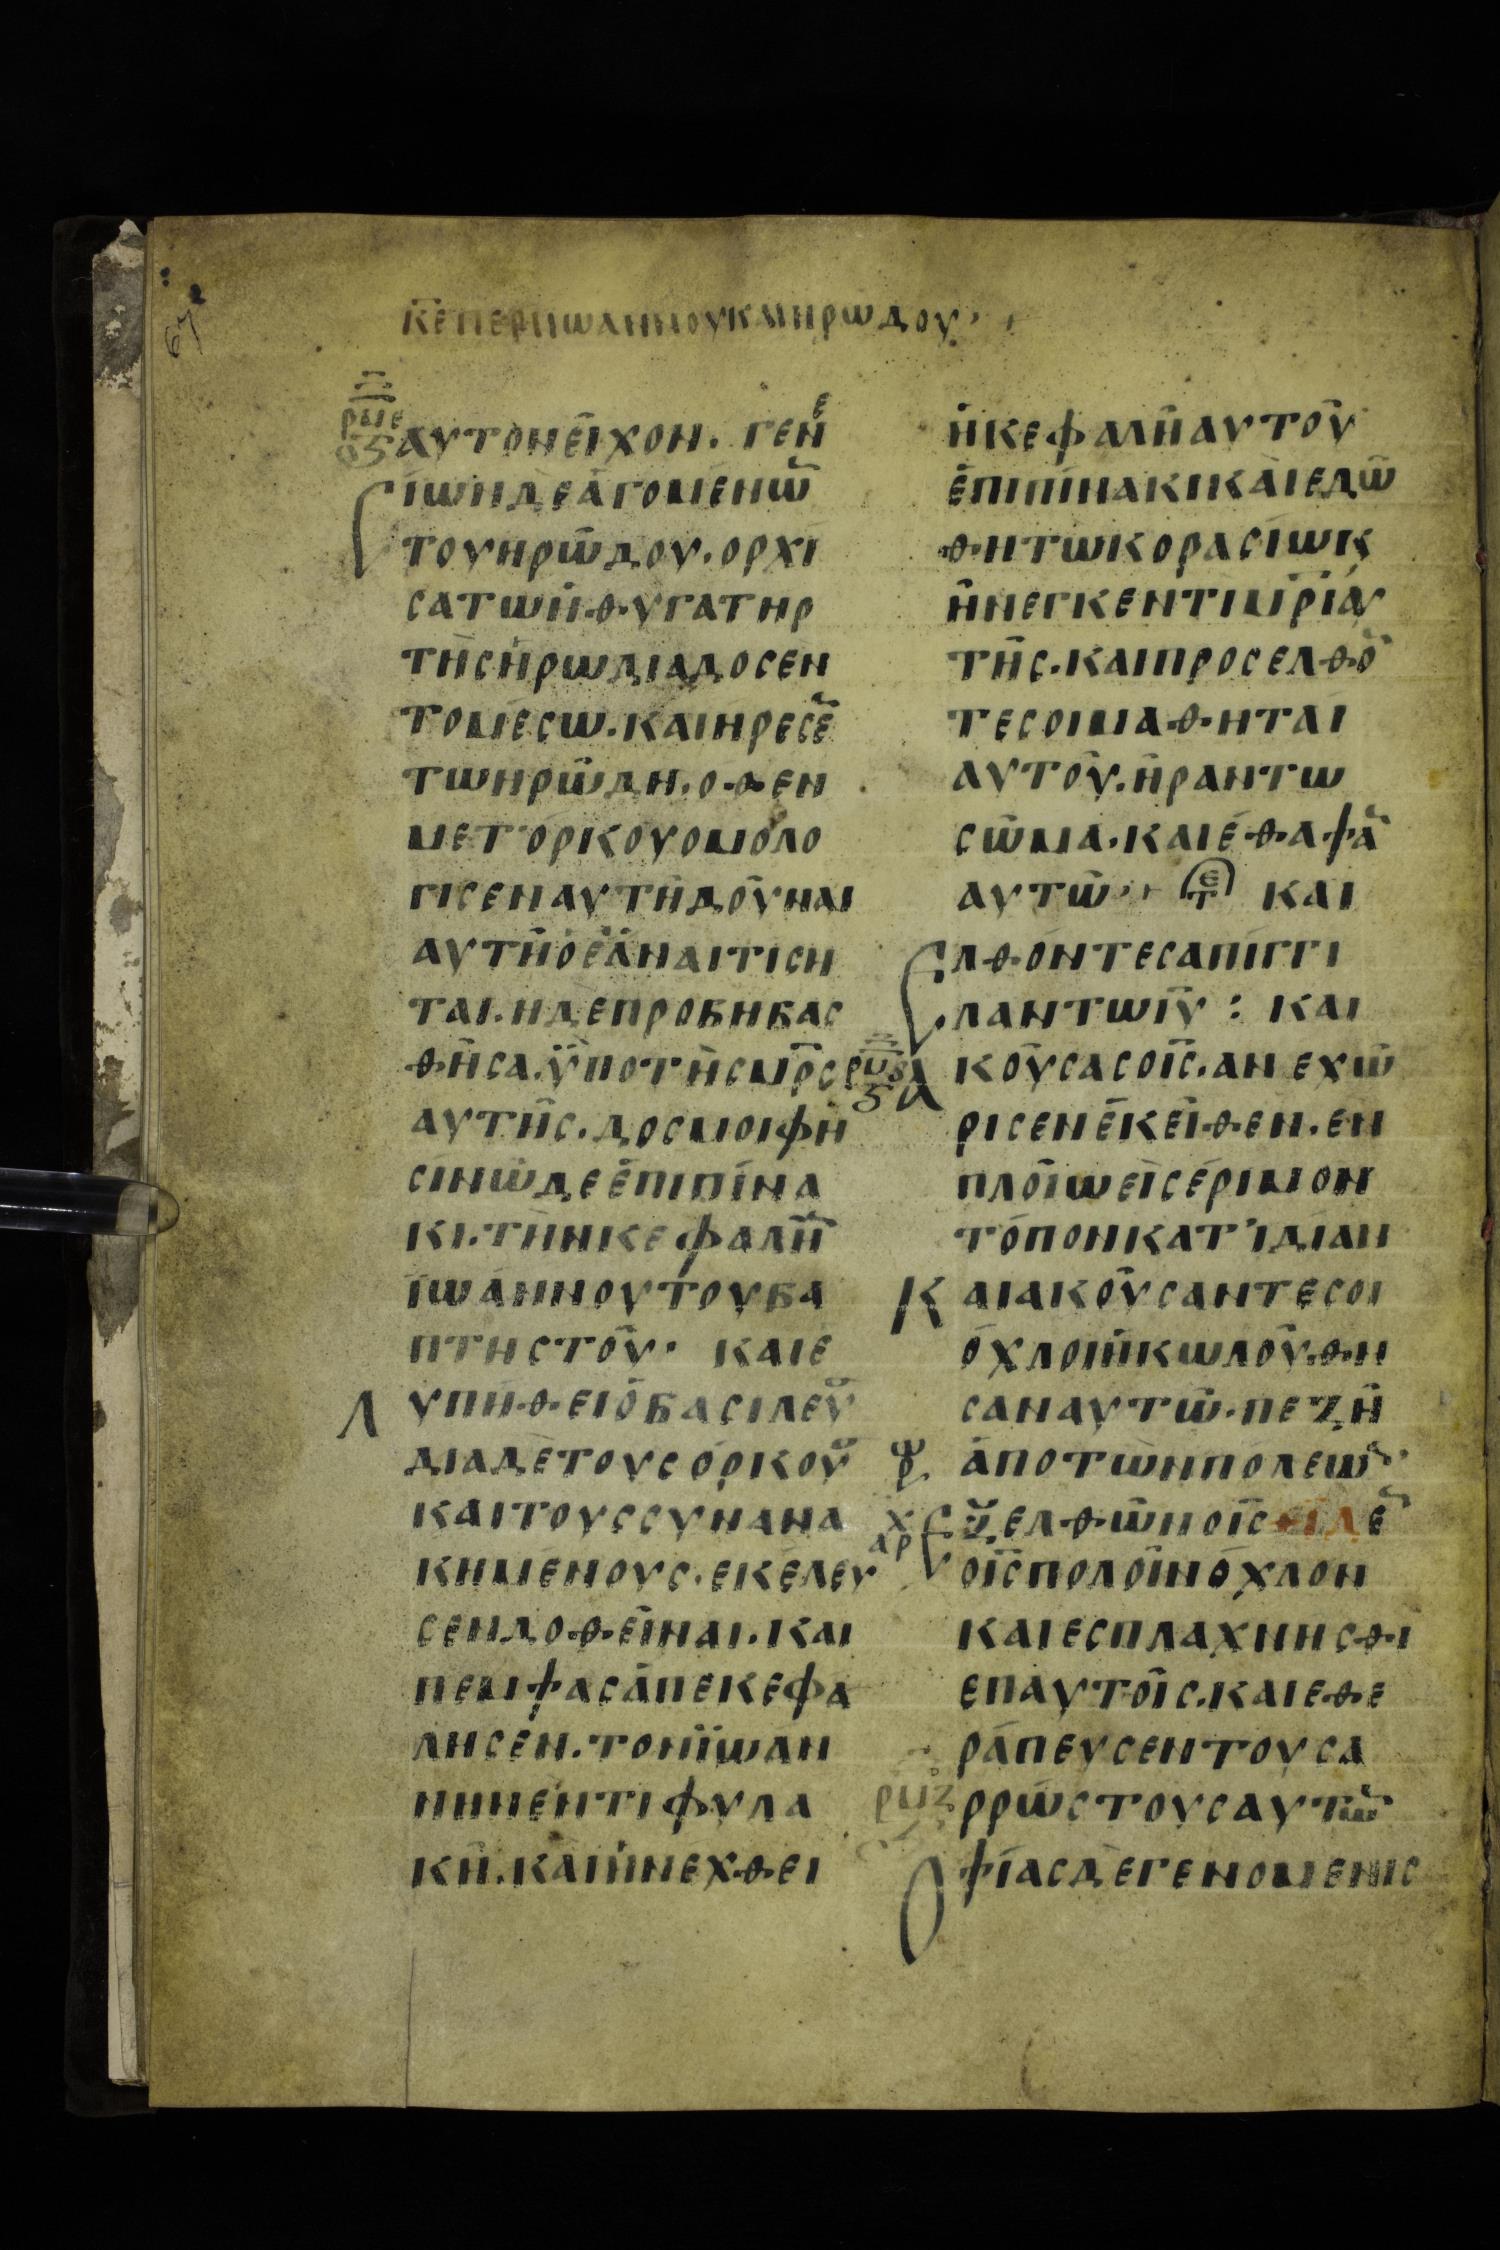 67
ΚΕ ΠΕΡΙ ΙΩΑΝΝΟΥ ΚΑΙ ΗΡΩΔΟΥ
ΑΥΤΟΝ ΕΙΧΟΝ. ΓΕΝΕ
CΙΩΝ ΔΕ ΑΓΟΜΕΝΩ̅
ΤΟΥ ΗΡΩΔΟΥ. ΟΡΧΙ
CΑΤΩ Η ΘΥΓΑΤΗΡ
ΤΗC ΗΡΩΔΙΑΔΟC ΕΝ
ΤΟ ΜΕCΩ. ΚΑΙ ΗΡΕCΕ̅
ΤΩ ΗΡΩΔΗ. ΟΘΕΝ
ΜΕΤ ΟΡΚΟΥ ΟΜΟΛΟ
ΓΙCΕΝ ΑΥΤΗ ΔΟΥΝΑΙ
ΑΥΤΗ Ο ΕΑΝ ΑΙΤΙCΗ
ΤΑΙ. Η ΔΕ ΠΡΟΒΗΒΑC
ΘΗCΑ. ΥΠΟ ΤΗC ΜΡ̅C
ΑΥΤΗC. ΔΟC ΜΟΙ ΦΗ
CΙΝ ΩΔΕ ΕΠΙ ΠΙΝΑ
ΚΙ. ΤΗΝ ΚΕΦΑΛΗ̅
ΙΩΑΝΝΟΥ ΤΟΥ ΒΑ
ΠΤΗCΤΟΥ. ΚΑΙ Ε
ΛΥΠΗΘΕΙ Ο ΒΑCΙΛΕΥ
ΔΙΑ ΔΕ ΤΟΥC ΟΡΚΟΥ
ΚΑΙ ΤΟΥC CΥΝΑΝΑ
ΚΗΜΕΝΟΥC. ΕΚΕΛΕΥ
CΕΝ ΔΟΘΕΙΝΑΙ. ΚΑΙ
ΠΕΜΨΑC ΑΠΕΚΕΦΑ
ΛΗCΕΝ. ΤΟΝ ΙΩΑΝ
ΝΗΝ ΕΝ ΤΙ ΦΥΛΑ
ΚΗ. ΚΑΙ ΗΝΕΧΘΕΙ
Η ΚΕΦΑΛΗ ΑΥΤΟΥ
ΕΠΙ ΠΙΝΑΚΙ ΚΑΙ ΕΔΩ
ΘΗ ΤΩ ΚΟΡΑCΙΩ Κ
ΗΝΕΓΚΕΝ ΤΙ ΜΙΡΙ ΑΥ
ΤΗC. ΚΑΙ ΠΡΟCΕΛΘΟ̅
ΤΕC ΟΙ ΜΑΘΗΤΑΙ
ΑΥΤΟΥ. ΗΡΑΝ ΤΩ
CΩΜΑ. ΚΑΙ ΕΘΑΨΑ̅
ΑΥΤΩ ΚΑΙ
ΕΛΘΟΝΤΕC ΑΠΙΓΓΙ
ΛΑΝ ΤΩ ΙΥ̅ : ΚΑΙ
ΑΚΟΥCΑC Ο ΙC̅. ΑΝΕΧΩ
ΡΙCΕΝ ΕΚΕΙΘΕΝ. ΕΝ
ΠΛΟΙΩ ΕΙC ΕΡΙΜΟΝ
ΤΟΠΟΝ ΚΑΤ ΙΔΙΑΝ
ΚΑΙ ΑΚΟΥCΑΝΤΕC ΟΙ
ΟΧΛΟΙ ΗΚΩΛΟΥΘΗ
CΑΝ ΑΥΤΩ. ΠΕΖΗ
ΑΠΟ ΤΩΝ ΠΟΛΕΩ̅
ΕΞΕΛΘΩΝ Ο ΙC̅ ΕΙΔΕ̅
Ο ΙC̅ ΠΟΛΟΙΝ ΟΧΛΟΝ
ΚΑΙ ΕCΠΛΑΧΝΗCΘΙ
ΕΠ ΑΥΤΟΙC. ΚΑΙ ΕΘΕ
ΡΑΠΕΥCΕΝ ΤΟΥC Α
ΡΡΩCΤΟΥC ΑΥΤΩ̅
ΟΨΙΑC ΔΕ ΓΕΝΟΜΕΝΙC